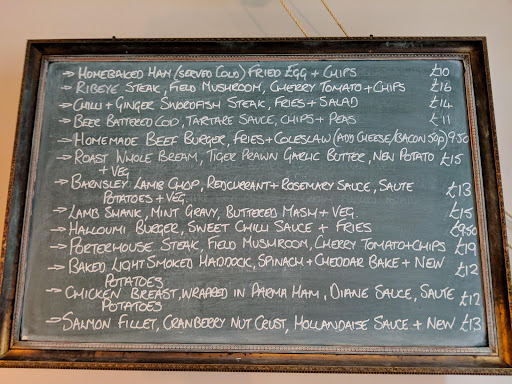 → Homebaked Ham (served cold) Fried Egg + Chips £10
→ Ribeye Steak, Field Mushroom, Cherry Tomato + Chips £16
→ Chilli + Ginger Swordfish Steak, Fries + Salad £14
→ Beer Battered Cod, Tartare Sauce, Chips + Peas £11
→ Homemade Beef Burger, Fries + Coleslaw (Add Cheese/Bacon 50p) 9.50
→ Roast Whole Bream, Tiger Prawn Garlic Butter, New Potato £15
+ Veg
→ Barnsley Lamb Chop, Redcurrant + Rosemary Sauce, Saute £13
Potatoes + Veg
→ Lamb Shank, Mint Gravy, Buttered Mash + Veg £15
→ Halloumi Burger, Sweet Chilli Sauce + Fries £9.50
→ Porterhouse Steak, Field Mushroom, Cherry Tomato + Chips £19
→ Baked Light Smoked Haddock, Spinach + Cheddar Bake + New £12
Potatoes
→ Chicken Breast, wrapped in Parma Ham, Diane Sauce, Saute £12
Potatoes
→ Salmon Fillet, Cranberry Nut Crust, Hollandaise Sauce + New £13